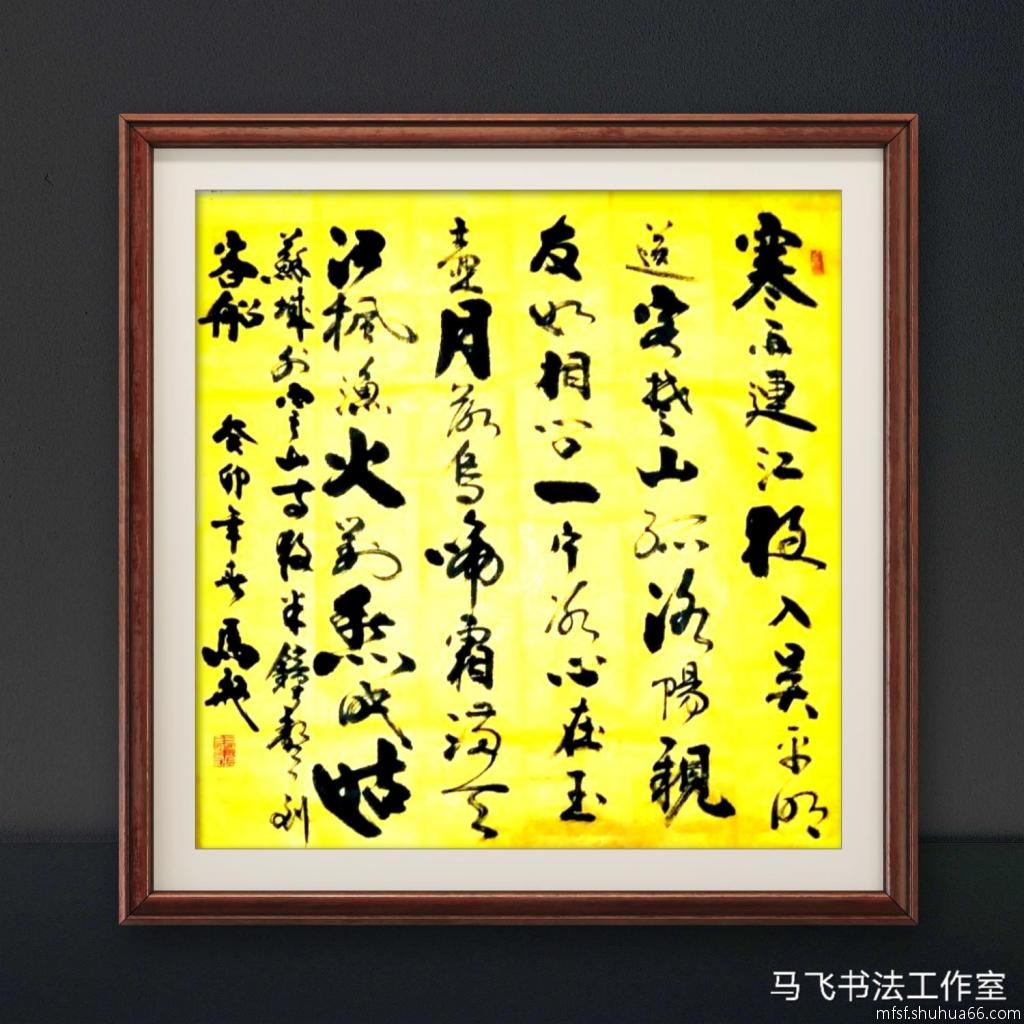 寒雨連江夜入吳平明
送客楚山孤洛陽親
友如相問一片冰心在玉
壺月落烏啼霜滿天
江楓漁火對愁眠姑
蘇城外寒山寺夜半鐘聲到
客船 癸卯年春 馬飛
马飞书法工作室
mfsf.shuhua66.com